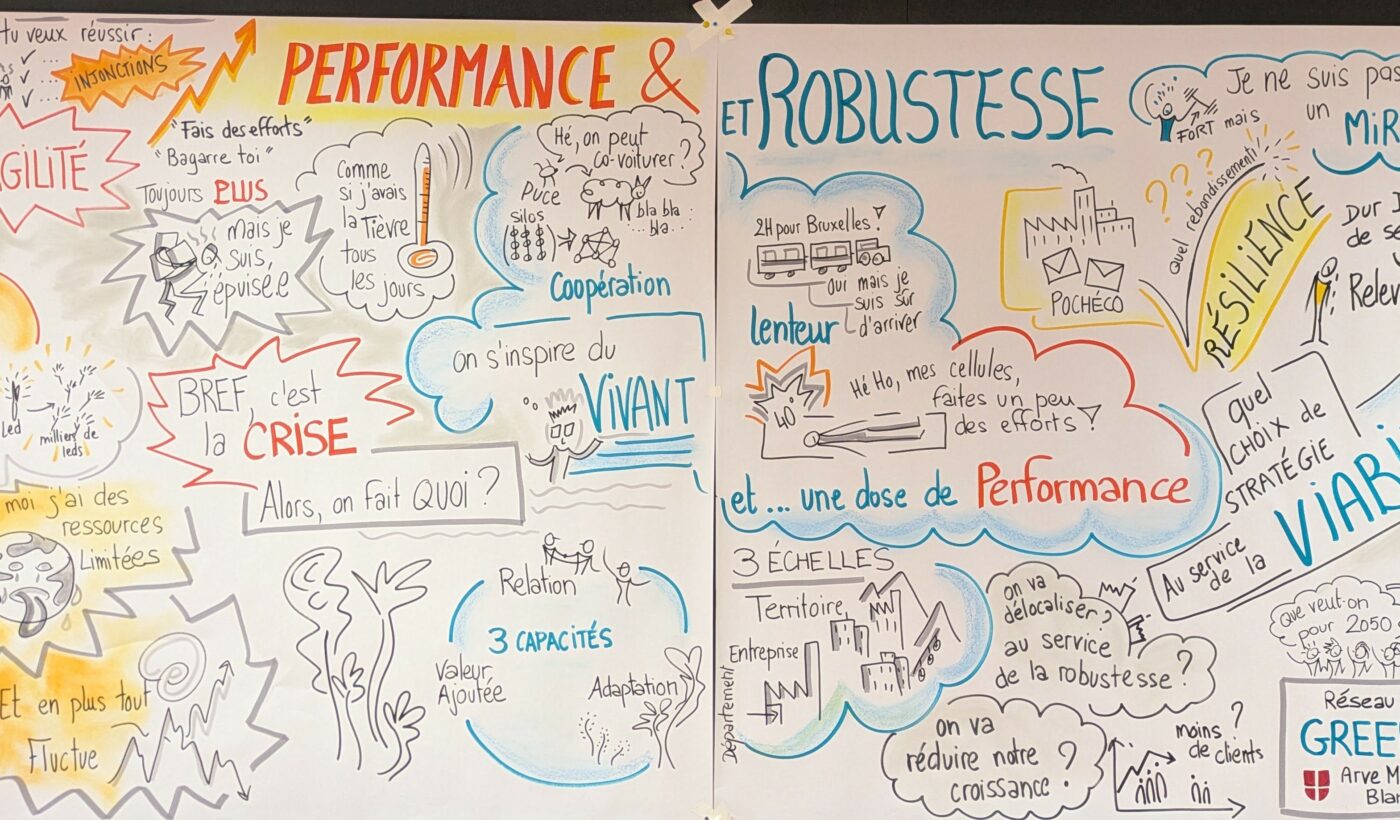 tu veux réussir :
INJONCTIONS
GILITÉ
"Fais des efforts"
"Bagarre toi"
Toujours PLUS
mais je
suis
épuisé.e
Comme
si j'avais
la Fièvre
tous
les jours
PERFORMANCE &
Hé, on peut
co-voiturer ?
Puce
bla bla :
... bla ..
Silos
Coopération
on s'inspire du
VIVANT
Led
milliers de
leds
BREF, c'est
la CRISE
Alors, on fait QUOI ?
moi j'ai des
ressources
Limitées
Et en plus tout
Fluctue
Relation
3 CAPACITÉS
Valeur
Ajoutée
Adaptation
ET ROBUSTESSE
2H pour Bruxelles !
oui mais je
suis sûr
d'arriver
lenteur
40°
Hé Ho, mes cellules,
faites un peu
des efforts !
et ... une dose de Performance
3 ÉCHELLES
Territoire
Entreprise
Département
POCHÉCO
???
quel rebondissement !
RÉSILIENCE
Je ne suis pas
FORT mais
un
MIR
DUR
de
Relev
quel
CHOIX de
STRATÉGIE
Au service
de la
VIAB
on va
délocaliser ?
au service
de la robustesse ?
on va
réduire notre
croissance ?
moins ?
de clients
Que veut-on
pour 2050
Réseau
GREE
Arve M
Blan